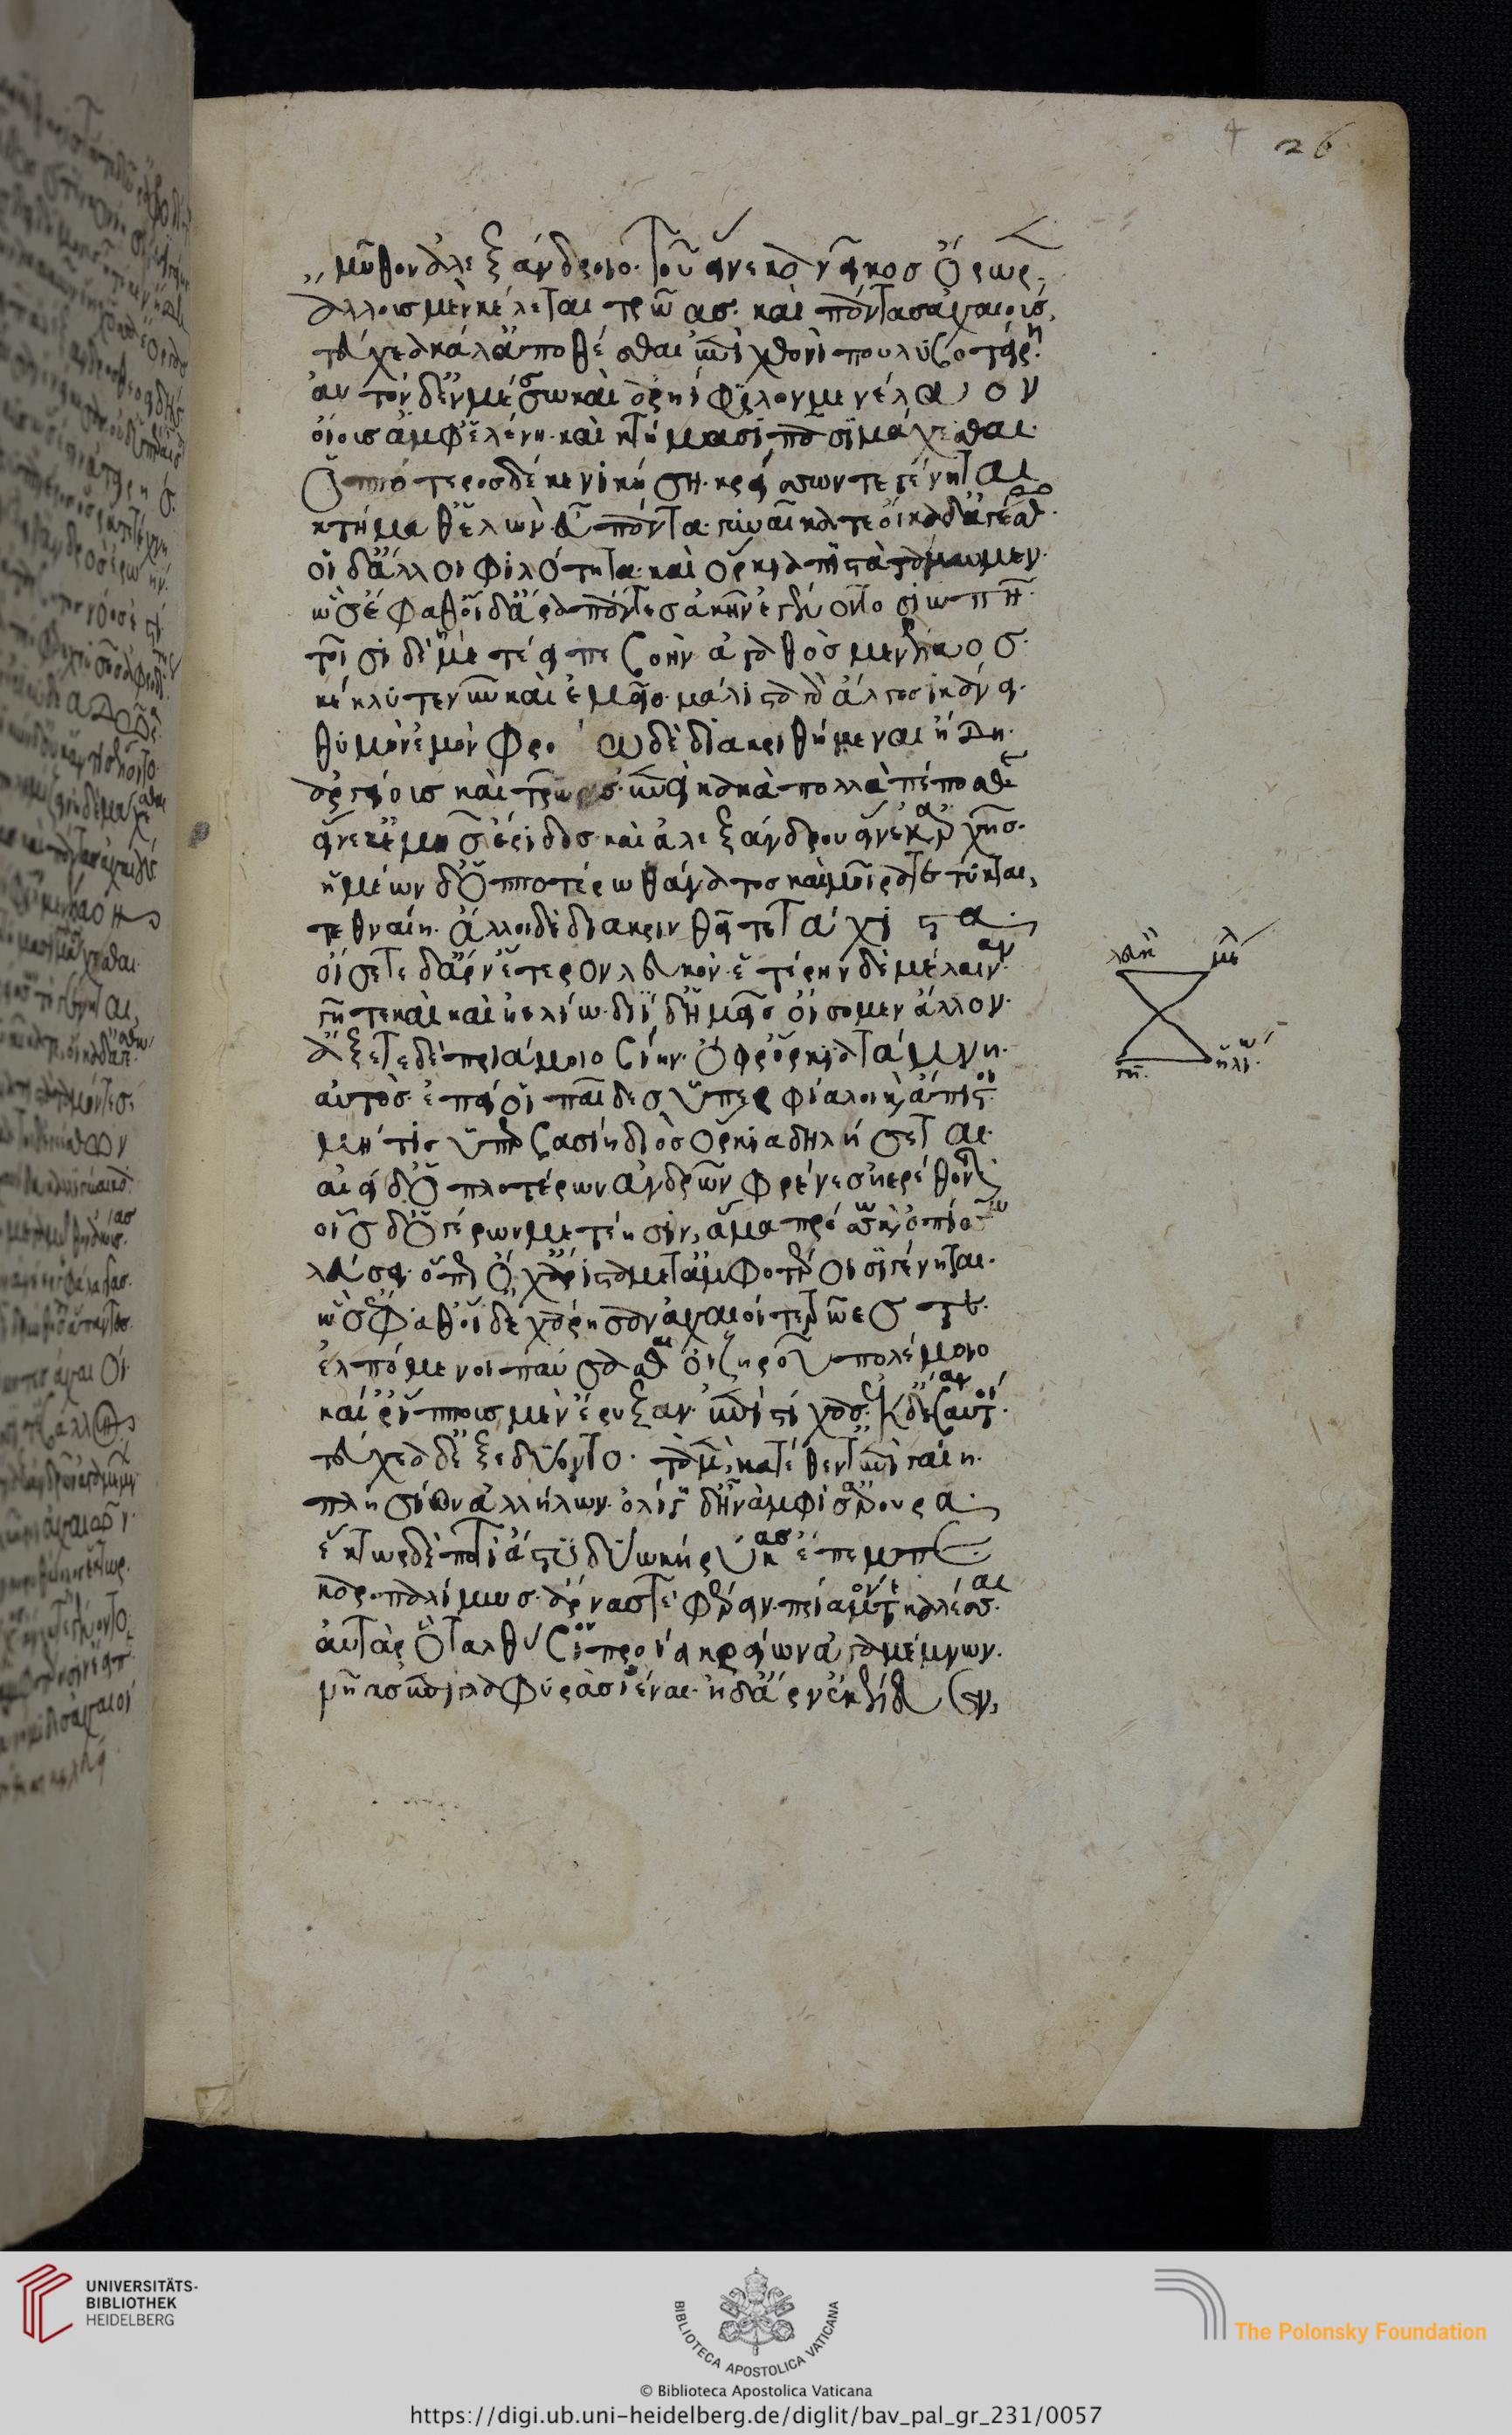 μῦθον ἀλεξάνδροιο. τοῦ εἵνεκα νεῖκος ὄρωρε
ἄλλους μὲν κέλεται τρῶας. καὶ πάντας ἀχαιούς,
τεύχεα κάλ' ἀποθέσθαι ἐπὶ χθονὶ πουλυβοτείρη.
αὐτὸν δ' ἐν μέσσω καὶ ἀρηΐφιλον μενέλαον
οἴους ἀμφ' ἑλένη. καὶ κτήμασι πᾶσι μάχεσθαι.
ὁππότερος δέ κε νικήση. κρείσσων τε γένηται
κτήμαθ' ἑλὼν εὖ πάντα. γυναῖκά τε οἴκαδ' ἀγέσθω.
οἱ δ' ἄλλοι φιλότητα. καὶ ὅρκια πιστὰ τάμωμεν.
ὣς ἔφαθ' οἱ δ' ἄρα πάντες ἀκὴν ἐγένοντο σιωπῆ.
τοῖσι δὲ μετέειπε βοὴν ἀγαθὸς μενέλαος.
κέκλυτε νῦν καὶ ἐμεῖο. μάλιστα γὰρ ἄλγος ἱκάνει.
θυμὸν ἐμὸν φρο ω δὲ διακριθήμεναι ἤδη.
ἀργείους καὶ τρῶας. ἐπεὶ κακὰ πολλὰ πέποσθε
εἵνεκ' ἐμῆς ἔριδος. καὶ ἀλεξάνδρου εἵνεκ' ἀρχῆς.
ἡμέων δ' ὁπποτέρω θάνατος καὶ μοῖρα τέτυκται,
τεθναίη. ἄλλοι δὲ διακρινθεῖτε τάχιστα.
οἴσετε δ' ἄρν' ἕτερον λευκὸν. ἑτέρην δὲ μέλαιναν.
γῆ τε καὶ καὶ ἠελίω. διῒ δ' ἡμεῖς οἴσομεν ἄλλον.
ἄξετε δὲ πριάμοιο βίην. ὄφρ' ὅρκια τάμνη.
αὐτὸς. ἐπεί οἱ παῖδες ὑπερφίαλοι κ(αὶ) ἄπιστοι
μή τις ὑπερβασίη διὸς ὅρκια δηλήσεται.
αἰεὶ δ' ὁπλοτέρων ἀνδρῶν φρένες ἠερέθονται
οἷς δ' ὁ γέρων μετέησιν, ἅμα πρόσσω κ(αὶ) ὀπίσσω
λεύσει. ὅπως ὄχ' ἄριστα μετ' ἀμφοτέροισι γένηται.
ὣς ἔφαθ' οἱ δ' ἐχάρησαν ἀχαιοί τε τρῶές τε.
ἐλπόμενοι παύσασθαι ὀϊζυροῦ πολέμοιο
καί ῥ' ἵππους μὲν ἔρυξαν. ἐπὶ στίχας. ἐκ δ' ἔβαν αὐτοί.
τεύχεα δ' ἐξεδύοντο. τὰ μὲν κατέθεντ' ἐπὶ γαίη.
πλησίον ἀλλήλων. ὀλίγη δ' ἦν ἀμφὶς ἄρουρα.
ἕκτωρ δὲ ποτὶ ἄστυ δύω κήρυκας ἔπεμπε.
καρπαλίμως. ἄρνας τε φέρειν. πρίαμόν τε καλέσσαι.
αὐτὰρ ὃ ταλθύβιον προΐει κρείων ἀγαμέμνων.
νῆας ἐπὶ γλαφυρὰς ἰέναι. ἠδ' ἄρν' ἐκέλευεν,
λευκὴ
μέλ
γῆ.
ἡλίω
26
UNIVERSITÄTS-
BIBLIOTHEK
HEIDELBERG
BIBLIOTECA APOSTOLICA VATICANA
The Polonsky Foundation
© Biblioteca Apostolica Vaticana
https://digi.ub.uni-heidelberg.de/diglit/bav_pal_gr_231/0057